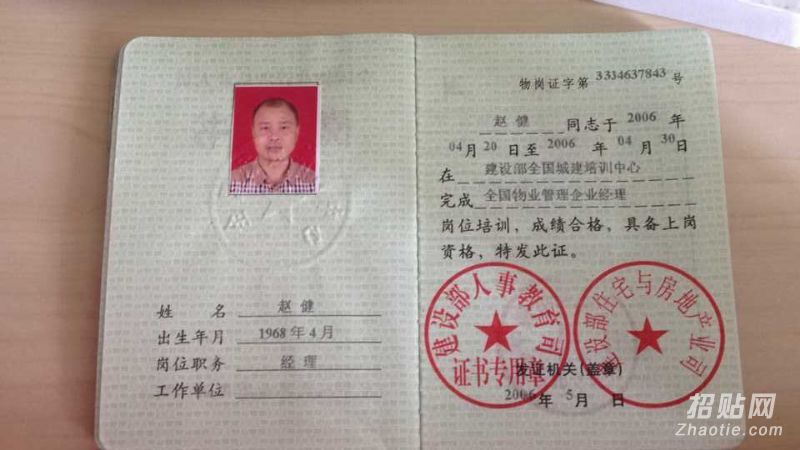 姓 名 赵 健
出生年月 1968年4月
岗位职务 经 理
工作单位
物岗证字第 3334637843 号
赵 健 同志于 2006 年
04 月 20 日至 2006 年 04 月 30 日
在 建设部全国城建培训中心
完成 全国物业管理企业经理
岗位培训，成绩合格，具备上岗
资格，特发此证。
建设部人事教育司
证书专用章
建设部住宅与房地产业司
发证机关(盖章)
2006 年 5 月 日
招贴网
Zhaotie.com